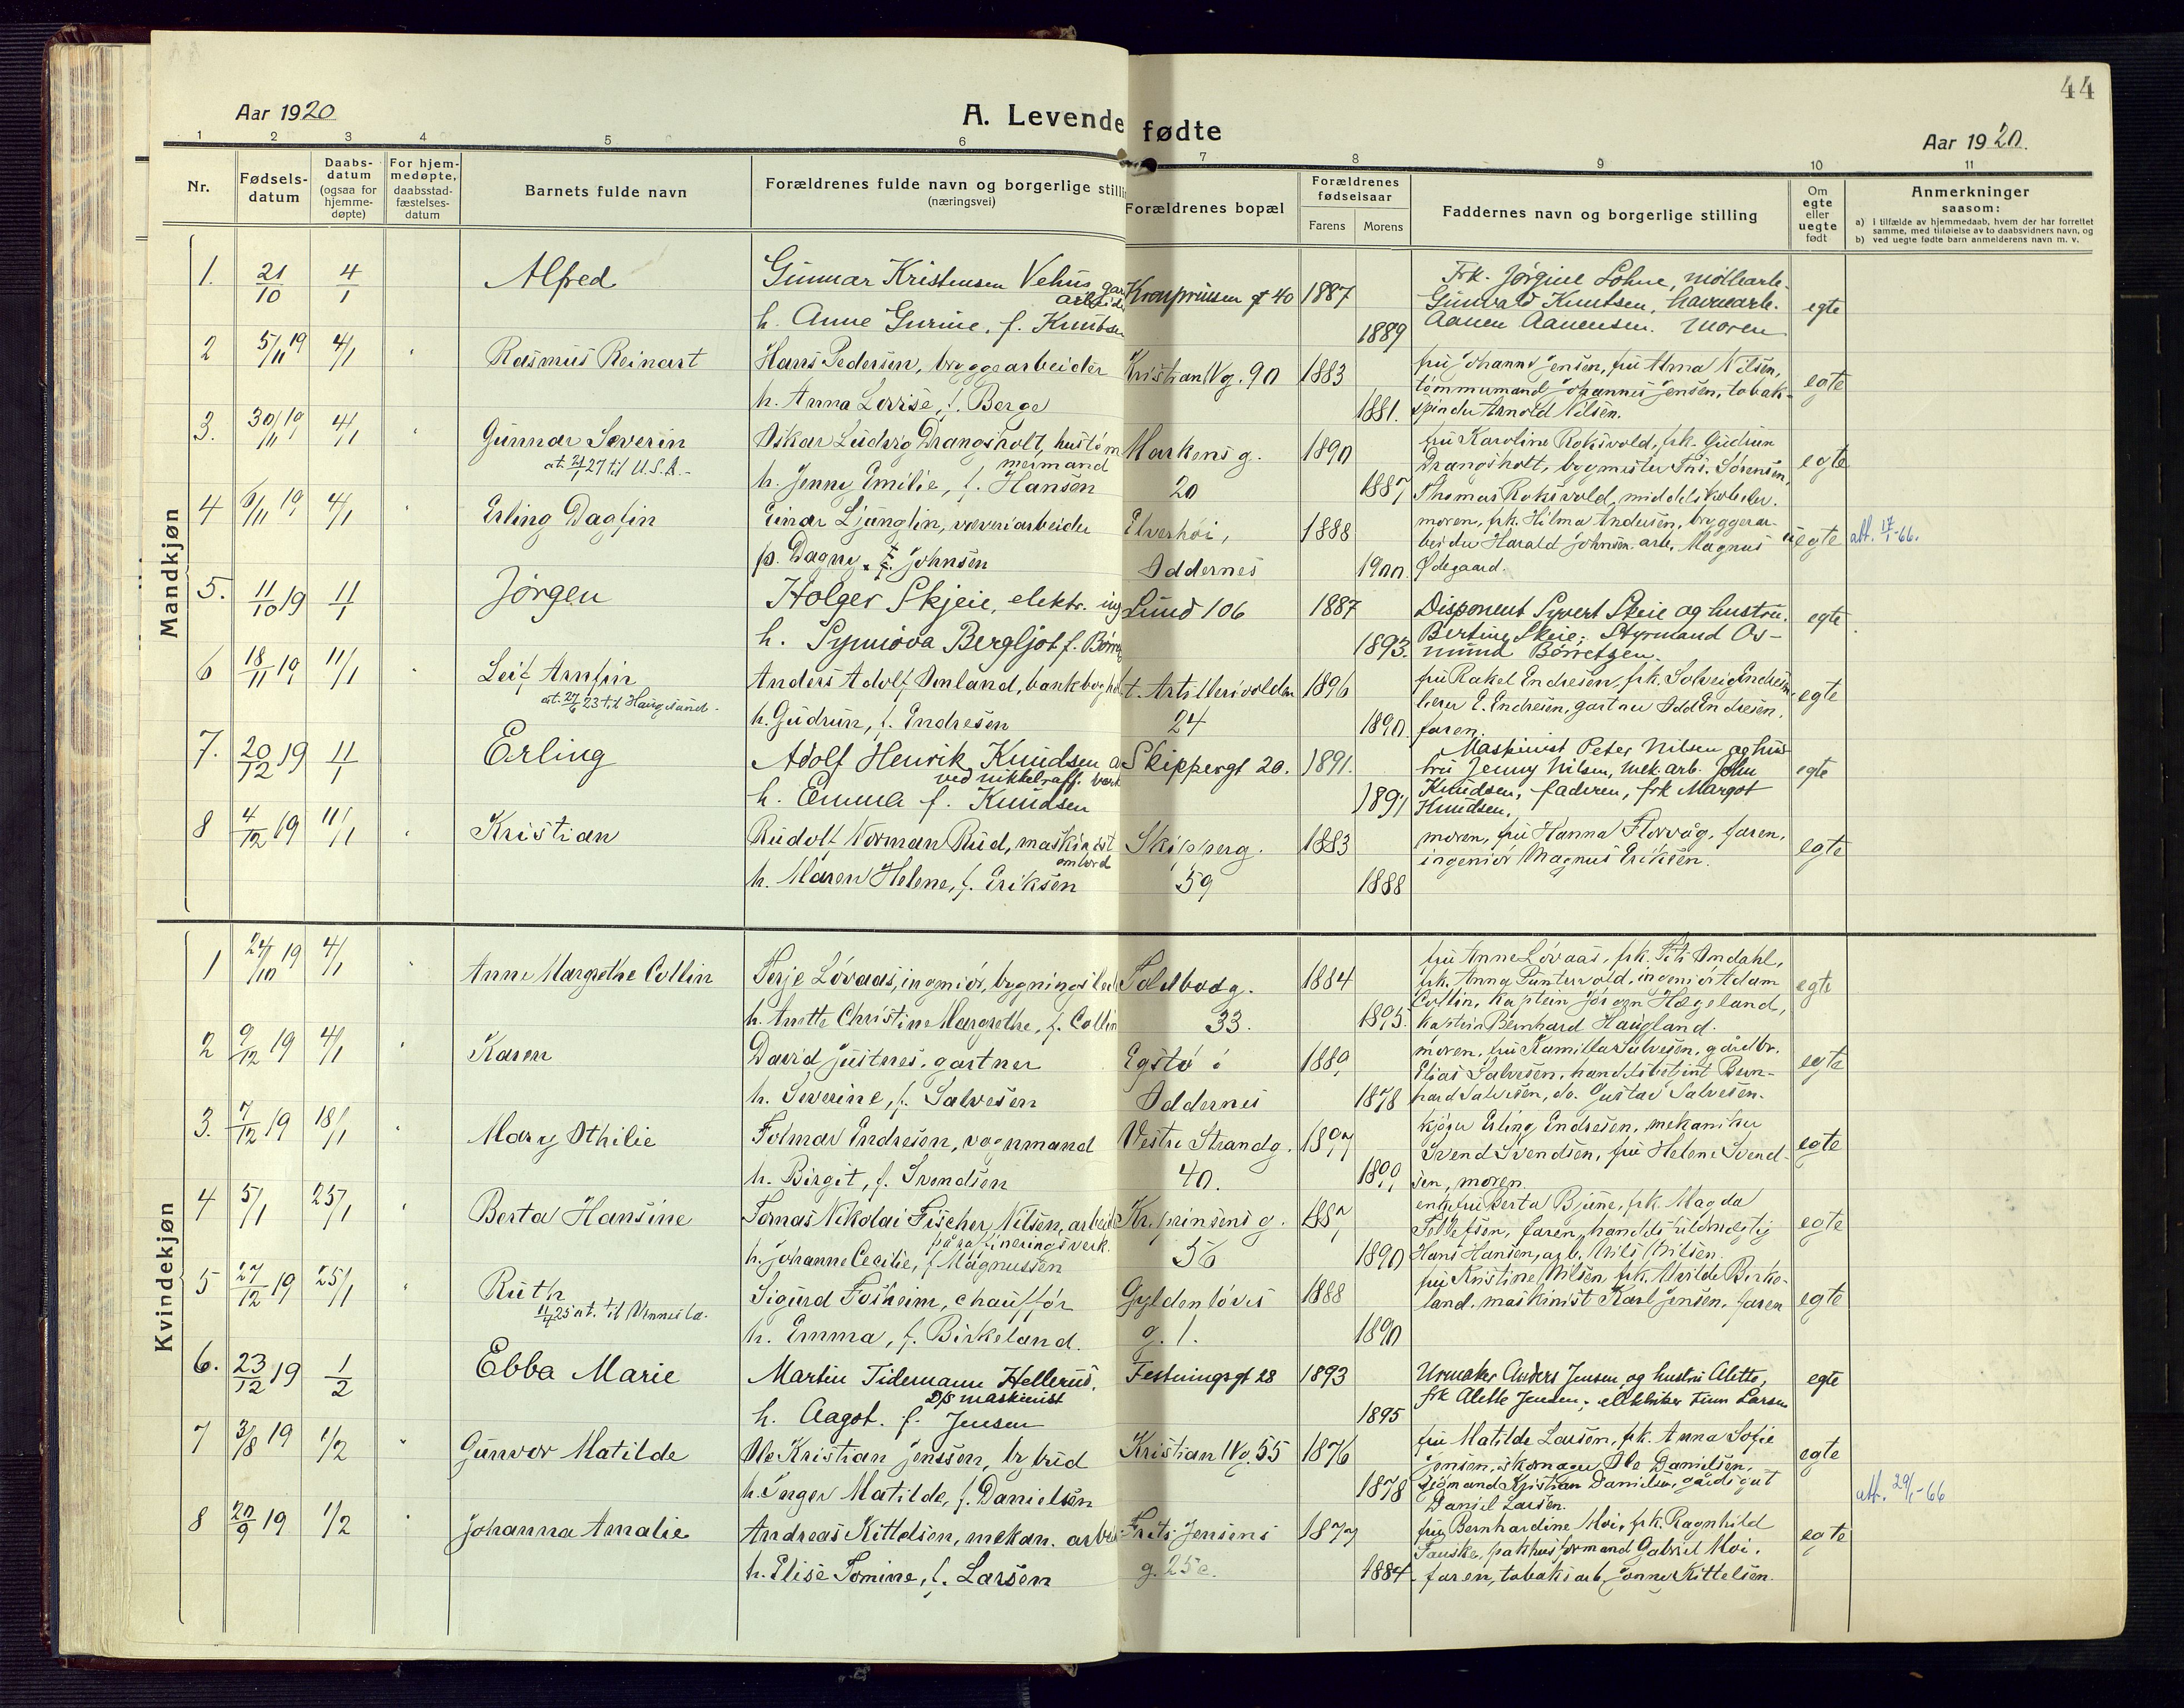 44
Aar 1920
A. Levende fødte
Aar 1920.
1 2 3 4 5 6 7 8 9 10 11
Nr.
Fødsels-
datum
Daabs-
datum
(ogsaa for
hjemme-
døpte)
For hjem-
medøpte,
daabsstad-
fæstelses-
datum
Barnets fulde navn
Forældrenes fulde navn og borgerlige stilli
(næringsvei)
Forældrenes bopæl
Forældrenes
fødselsaar
Farens Morens
Faddernes navn og borgerlige stilling
Om
egte
eller
uegte
født
Anmerkninger
saasom:
a) i tilfælde av hjemmedaab, hvem der har forrettet
samme, med tilføielse av to daabsvidners navn, og
b) ved uegte fødte barn anmelderens navn m. v.
Mandkjøn
1. 21/10 4/1 Alfred Gunnar Kristensen Vehus Kronprinsen gt 40 1887 Frk. Jørgine Lohne, møllearb.
arbeid Gunvald Knutsen, havnearb. egte
h. Anne Gurine, f. Knutsen 1889 Aanen Aanensen. Moren
2 5/11 19 4/1 Rasmus Reinart Hans Pedersen, bryggearbeider Kristian IV g. 90 1883 fru Johanne Jensen, fru Alma Nilsen,
tømmermand Johannes Jensen, tobak- egte
h. Anna Lovise, f. Berge 1881. spinder Arnold Nilsen.
3. 30/11 19 4/1 Gunnar Severin Oskar Ludvig Drangsholt, hustøm Markens g. 1890 fru Karoline Roksvold, frk. Gudrun
at. 21/1 27 til U.S.A. mermand Drangsholt, bygmester Sørensen, egte
h. Jenny Emilie, f. Hansen 20 1887 Thomas Roksvold, middelskoleelev.
4 6/11 19 4/1 Erling Dagfin Einar Ljunglin, væveriarbeider Elverhøi, 1888 moren, frk. Hilma Andersen, bryggerar-
beider Harald Johnsen, arb. Magnus uegte att. 17/1-66.
p. Dagny f. Johnsen Oddernes 1900. Ødegaard.
5. 11/10 19 11/1 Jørgen Holger Skjeie, elektr. ing Lund 106 1887 Disponent Syvert Skeie og hustru egte
Bertine Skeie; Styrmand As-
h. Synnøva Bergljot f. Børre 1893. mund Børretzen.
6 18/11 19 11/1 Leif Arnfin Anders Adolf Omland, bankboghol t. Artillerivolden 1896 fru Rakel Endresen, frk. Solveig Endresen,
at. 27/6 23 til Haugesund. lærer E. Endresen, gartner Odd Endresen, egte
h. Gudrun, f. Endresen 24 1890. faren.
7. 20/12 19 11/1 Erling Adolf Henrik Knudsen a Skippergt 20. 1891. Maskinist Peter Nilsen og hus-
ved nikkelraff. verk tru Jenny Nilsen, mek. arb. John egte
h. Emma f. Knudsen 1891 Knudsen, faderen, frk Margot
Knudsen.
8 4/12 19 11/1 Kristian Rudolf Norman Rud, maskinist Skipperg. 1883 moren, fru Hanna Florvåg, faren,
ombord ingeniør Magnus Eriksen. egte
h. Maren Helene, f. Eriksen 59 1888
Kvindekjøn
1 24/10 19 4/1 Anne Margrethe Collin Terje Løvaas, ingeniør, bygningsled Toldbodg. 1884 fru Anne Løvaas, frk. Omdahl,
frk. Anna Puntervold, ingeniør Adam egte
h. Anette Christine Margrethe, f. Collin 33. 1895. Collin, kaptein Jørgen Hægeland,
kaptein Bernhard Haugland.
2 9/12 19 4/1 Karen David Justnes, gartner Egstø i 1880 moren, fru Kamilla Salvesen, gårdbr.
Elias Salvesen, handelsbetjent Bern- egte
h. Severine, f. Salvesen Oddernes 1878 hard Salvesen, do. Gustav Salvesen.
3. 7/12 19 18/1 Mary Othilie Tolmar Endresen, vognmand Vestre Strandg. 1897 kjøger Erling Endresen, mekaniker
Svend Svendsen, fru Helene Svend- egte
h. Birgit, f. Svendsen 40. 1899 sen, moren.
4 5/1 25/1 Berta Hansine Tomas Nikolai Fischer Nilsen, arbeid Kr.prinsens g. enkefru Berta Bjune, frk. Magda
på raffineringsverk. Tellefsen, faren, handelsfuldmegtig egte
h. Johanne Cecilie, f. Magnussen 56 1890 Hans Hansen, arb. Nils Nilsen.
5 27/12 19 25/1 Ruth Sigurd Fosheim, chauffør Gyldenløves 1888 fru Kristine Nilsen, frk. Alvilde Birke-
11/4 25 at. til Vennesla. land, maskinist Karl Jensen, faren egte
h. Emma, f. Birkeland. g. 1. 1890
6. 23/12 19 1/2 Ebba Marie Martin Tidemann Hellerud, Festningsgt 28 1893 Urmaker Anders Jensen og hustru Alette, egte
D/S maskinist frk Alette Jensen, elektriker Finn Larsen
h. Aagot. f. Jensen 1895
7 3/8 19 1/2 Gunvor Matilde Ole Kristian Jenssen, bybud Kristian IV g. 55 1876 fru Matilde Larsen, frk. Anna Sofie
Jensen, skomager Ole Danielsen, egte
h. Inger Matilde, f. Danielsen 1878 sjømand Kristian Danielsen, gårdsgut
Daniel Larsen.
att. 29/1-66
8 20/9 19 1/2 Johanna Amalie Andreas Kittelsen, mekan. arbei Frits Jensens 1877 fru Bernhardine Moi, frk. Ragnhild
Tauske, pakhusformand Gabriel Moi, egte
h. Elise Tomine, f. Larsen g. 25 c. 1884 faren, tobaksarb. Kittelsen.